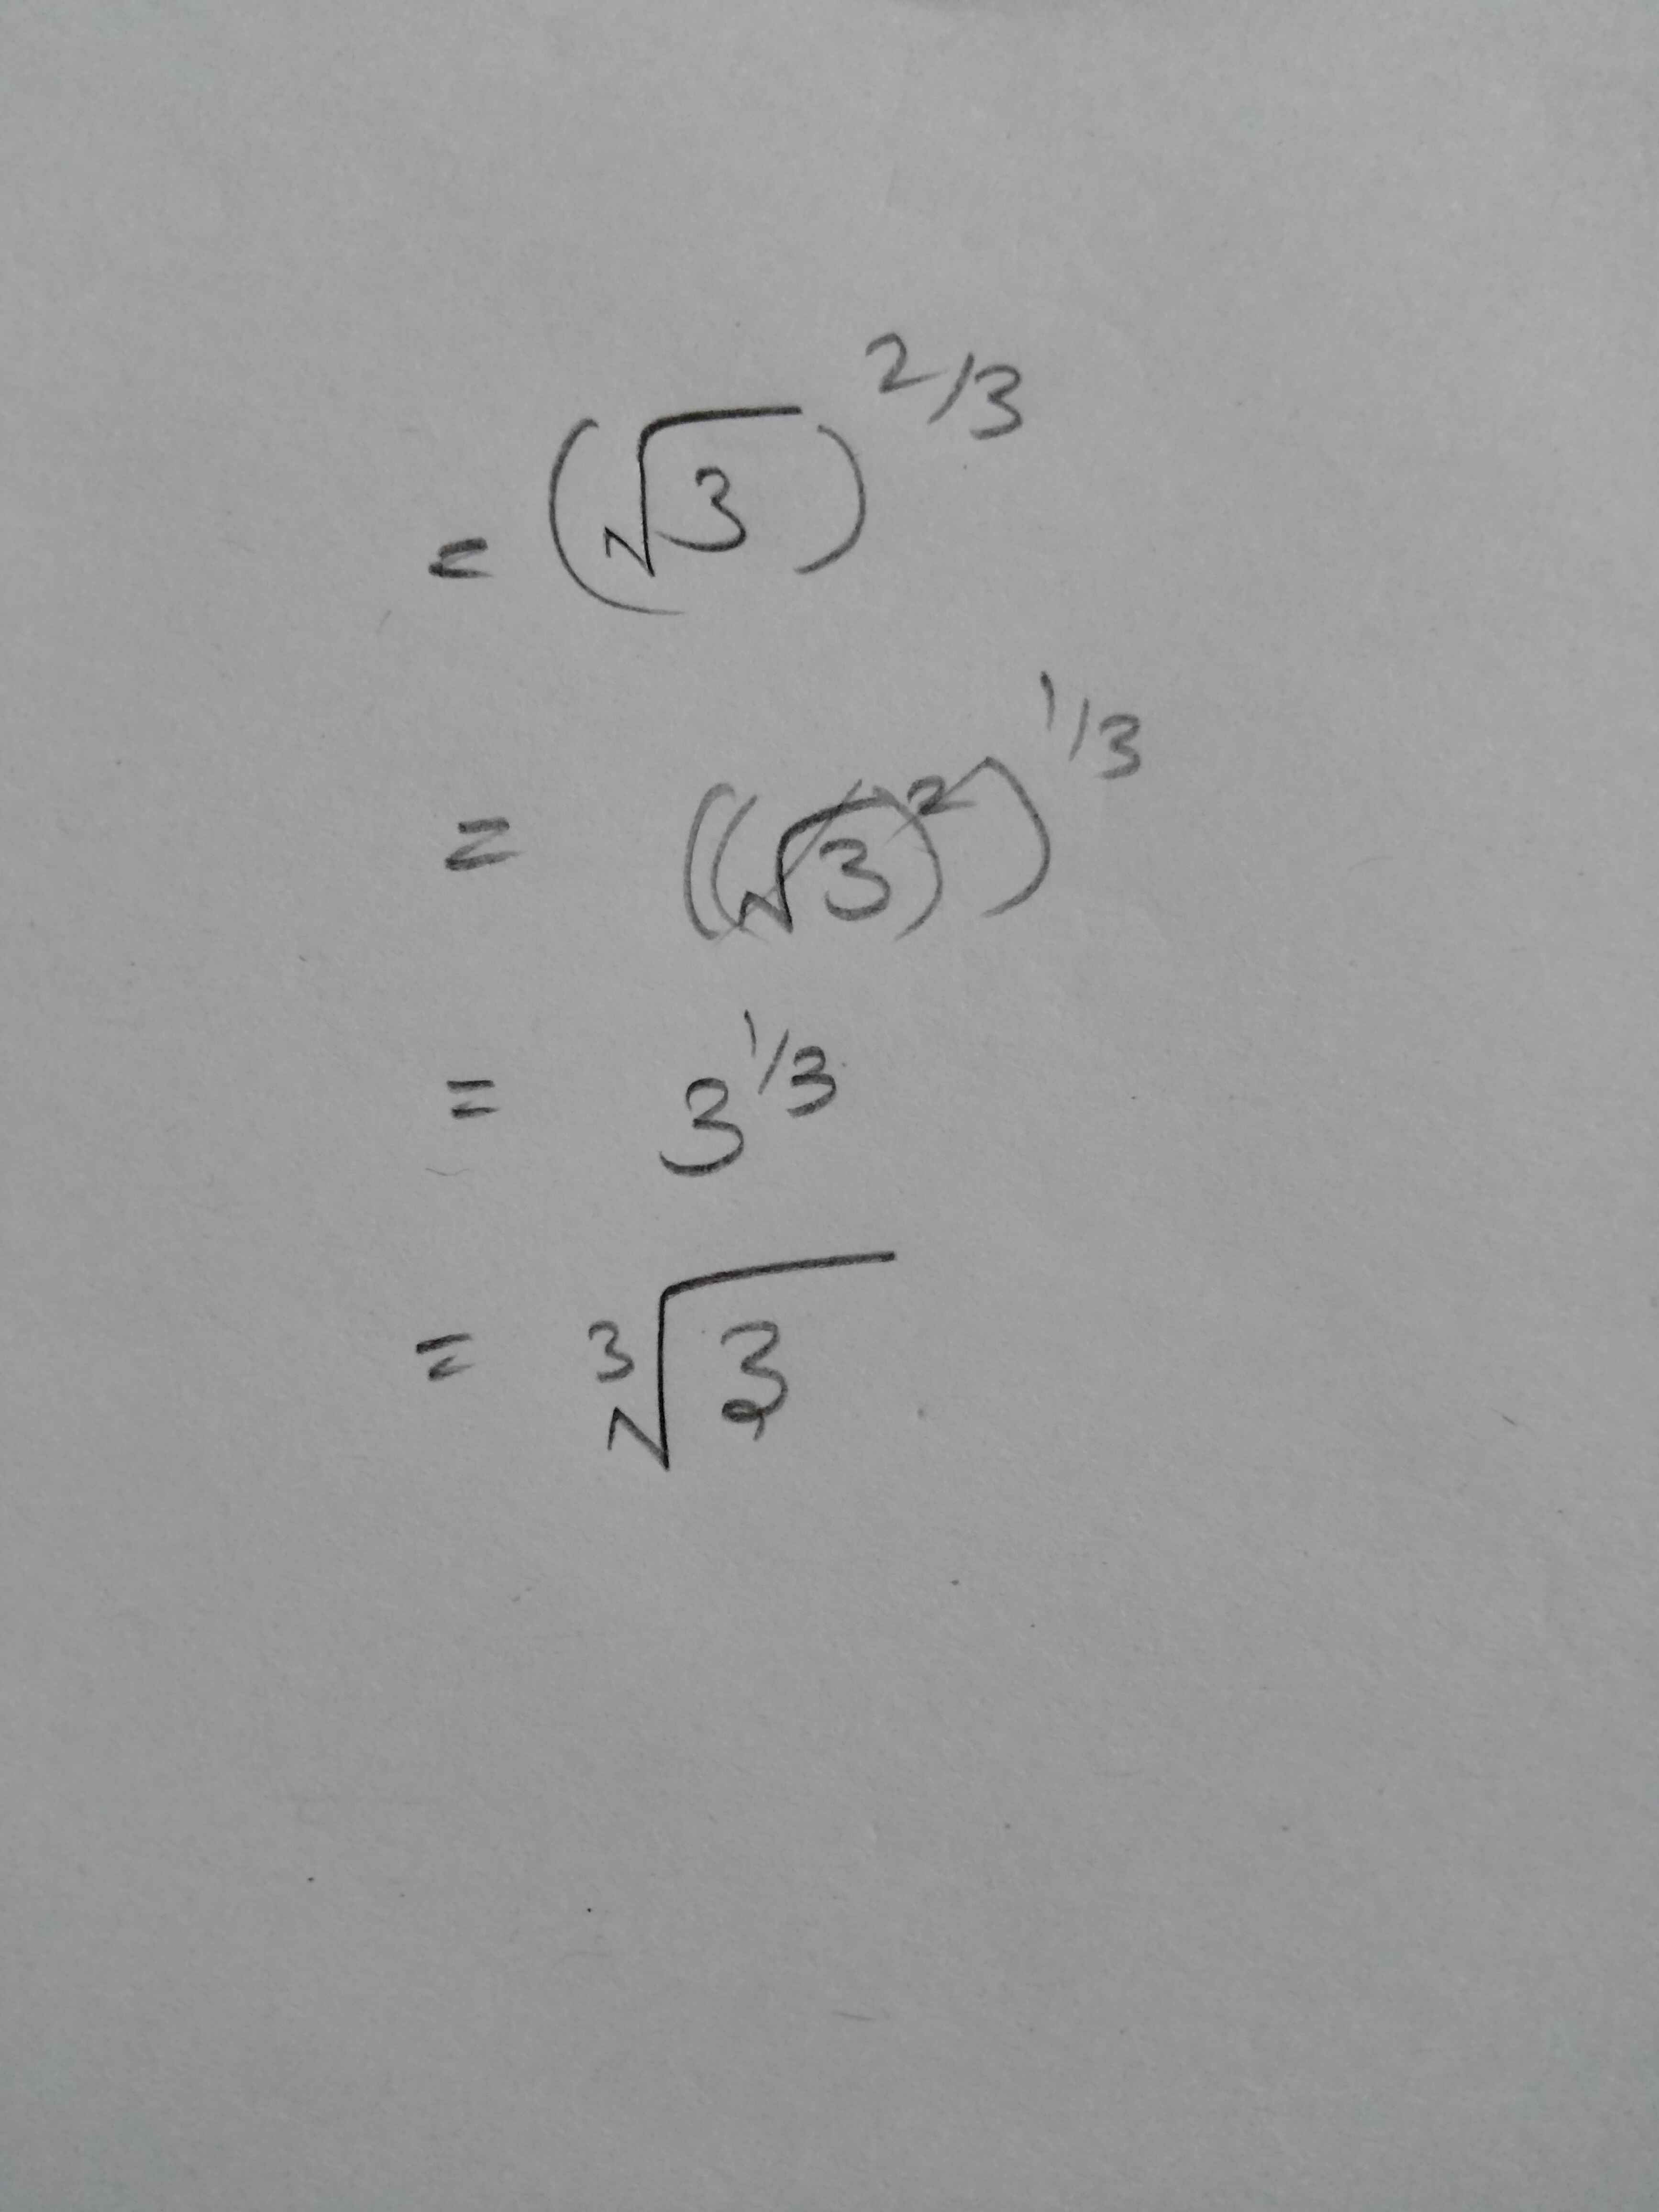 = (√3)^2/3
= ((√3)^2)^1/3
= 3^1/3
= ∛3